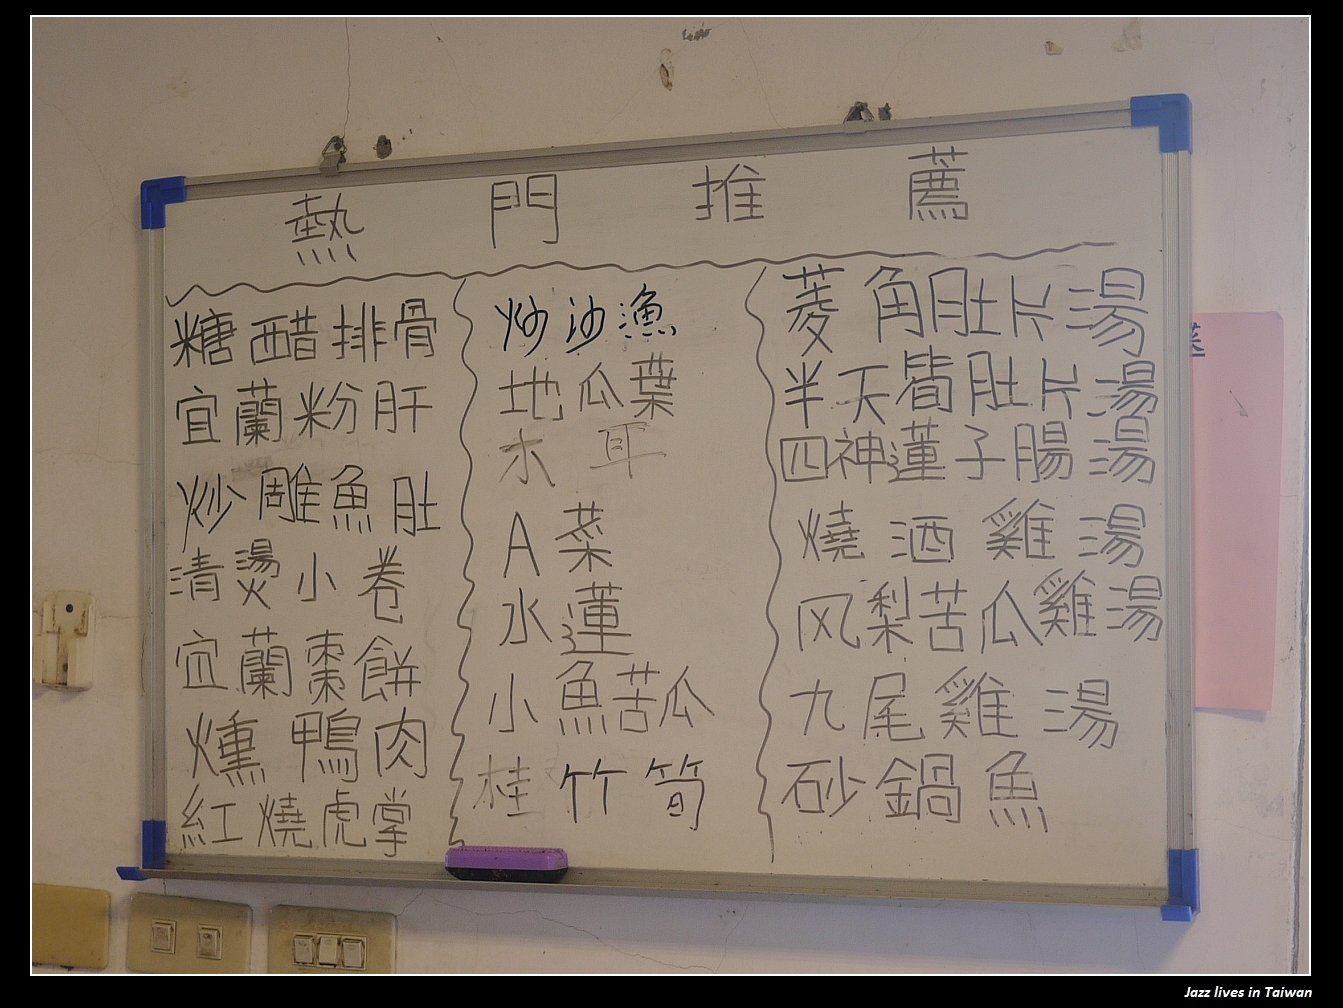 熱門推薦
糖醋排骨
宜蘭粉肝
炒雕魚肚
清燙小卷
宜蘭棗餅
燻鴨肉
紅燒虎掌
炒沙漁
地瓜葉
木耳
A菜
水蓮
小魚苦瓜
桂竹筍
菱角肚片湯
半天皆肚片湯
四神蓮子腸湯
燒酒雞湯
风梨苦瓜雞湯
九尾雞湯
砂鍋魚
Jazz lives in Taiwan